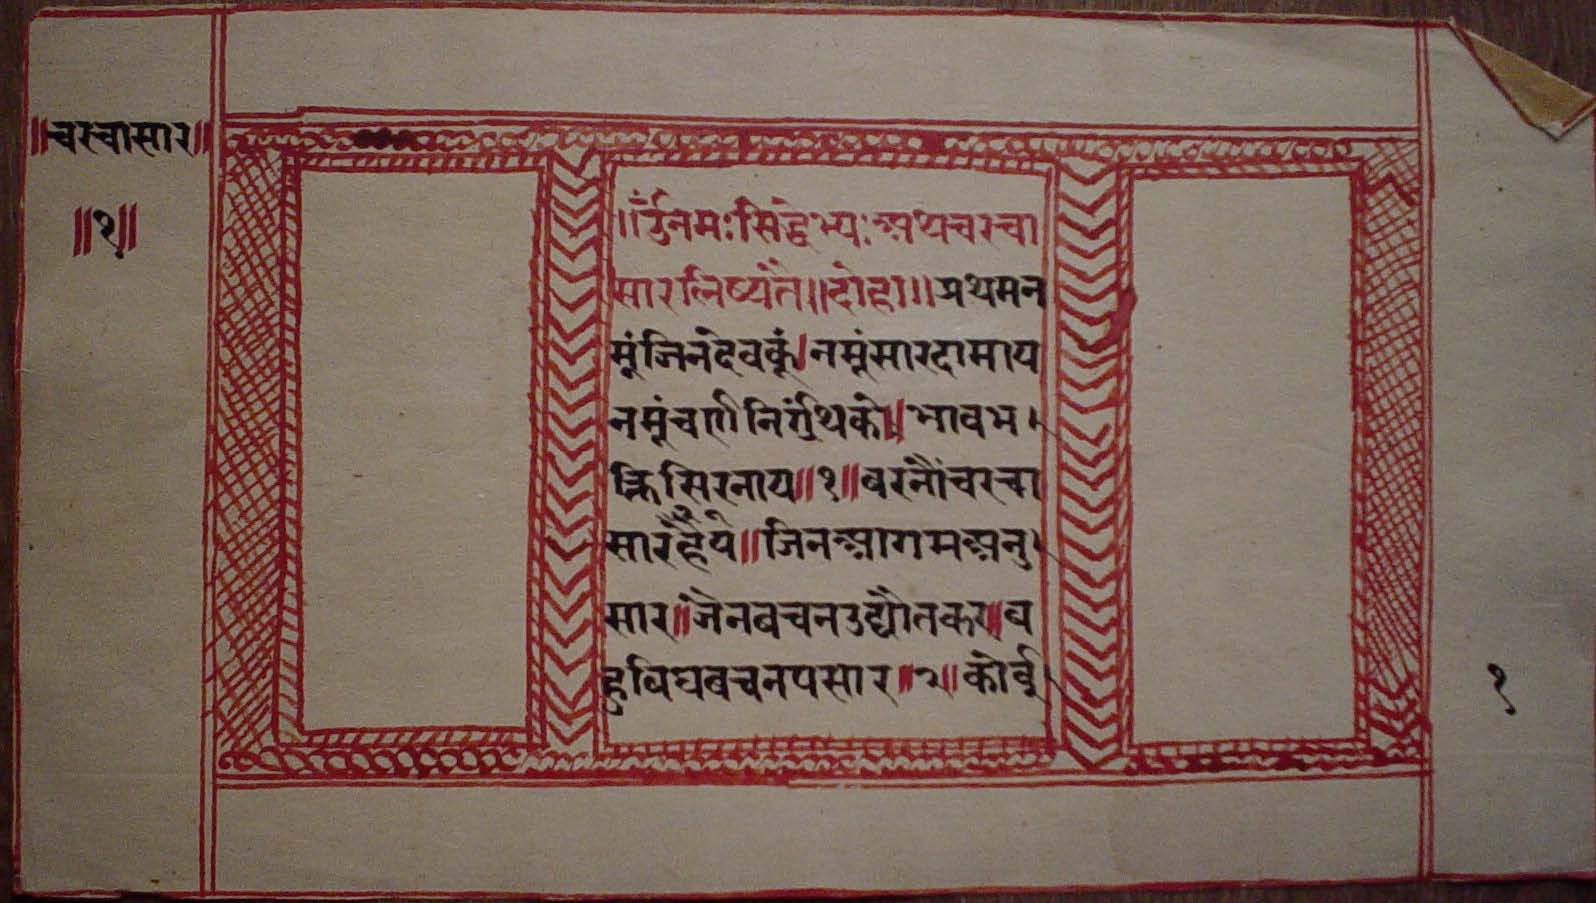 ॥चरचासार॥
॥१॥
॥ॐनमःसिद्धेभ्यःअथचरचा
सारलिष्यंते॥दोहा॥प्रथमन
मूंजिनदेवकूं।नमूंसारदामाय
नमूंचर्णनिर्ग्रंथिको।भावभ।
क्तिसिरनाय॥१॥बरनौंचरचा
सार॥जिनआगमअनु।
सार॥जैनबचनउद्यौतकर॥ब
हुविधबचनपसार॥२॥
१